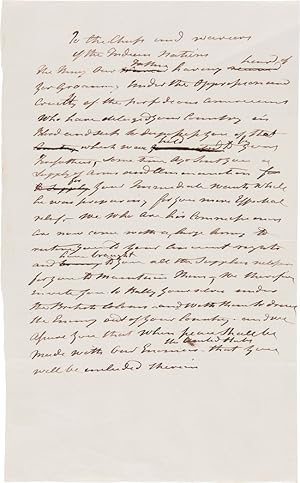 To the Chiefs and warriors
of the Indian Nations
The King Our Father having heard of
Your Grievances, under the Oppression and
Cruelty of the perfidious Americans
Who have deluged your Country in
Blood and seek to dispossess you of that
Country which was held by your
Forefathers, some time Ago sent you a
Supply of Arms and Ammunition for
your Immediate wants, While
he was preparing to give more Effectual
relief. We Who are his
are now come with a large Army to
restore you to Your ancient rights
and have brought to you all the Supplies necessary
for you to Maintain Them, We therefore
invite you to Rally Yourselves under
the British Colours, and with them to drive
the Enemy out of Your Country, and we
assure you that When peace shall be
made with Our Enemies the United States that you
will be included therein